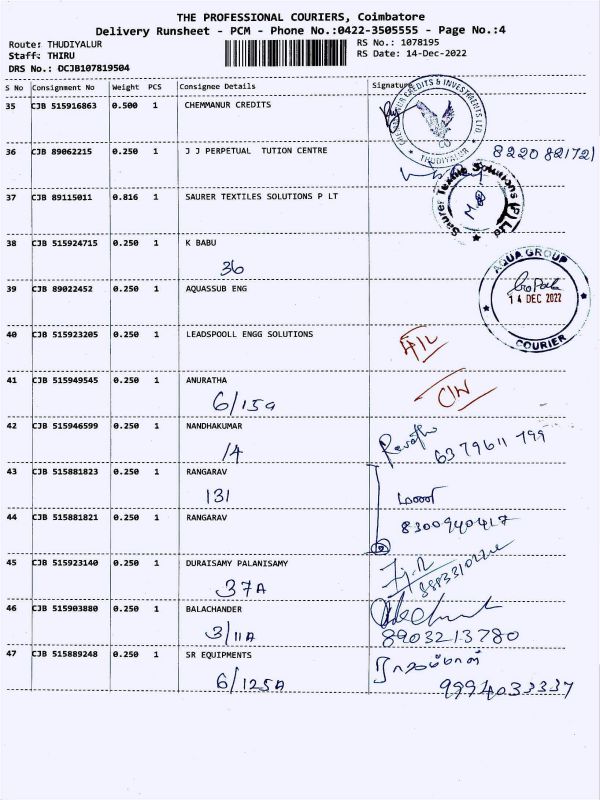 THE PROFESSIONAL COURIERS, Coimbatore
Delivery Runsheet - PCM - Phone No.:0422-3505555 - Page No.:4
Route: THUDIYALUR RS No.: 1078195
Staff: THIRU RS Date: 14-Dec-2022
DRS No.: DCJB107819504
S No Consignment No Weight PCS Consignee Details Signature
35 CJB 515916863 0.500 1 CHEMMANUR CREDITS
CREDITS & INVESTMENTS LTD
* THUDIYALUR *
36 CJB 89062215 0.250 1 J J PERPETUAL TUTION CENTRE
8220821721
37 CJB 89115011 0.816 1 SAURER TEXTILES SOLUTIONS P LT
Saurer Textile Solutions (P) Ltd
38 CJB 515924715 0.250 1 K BABU
36
39 CJB 89022452 0.250 1 AQUASSUB ENG
AQUA GROUP
14 DEC 2022
COURIER
40 CJB 515923205 0.250 1 LEADSPOOLL ENGG SOLUTIONS
41 CJB 515949545 0.250 1 ANURATHA
6/159
42 CJB 515946599 0.250 1 NANDHAKUMAR
1A
6379611799
43 CJB 515881823 0.250 1 RANGARAV
131
44 CJB 515881821 0.250 1 RANGARAV
8300940417
45 CJB 515923140 0.250 1 DURAISAMY PALANISAMY
37A
46 CJB 515903880 0.250 1 BALACHANDER
3/11A
8903213780
47 CJB 515889248 0.250 1 SR EQUIPMENTS
6/125A
9994033337